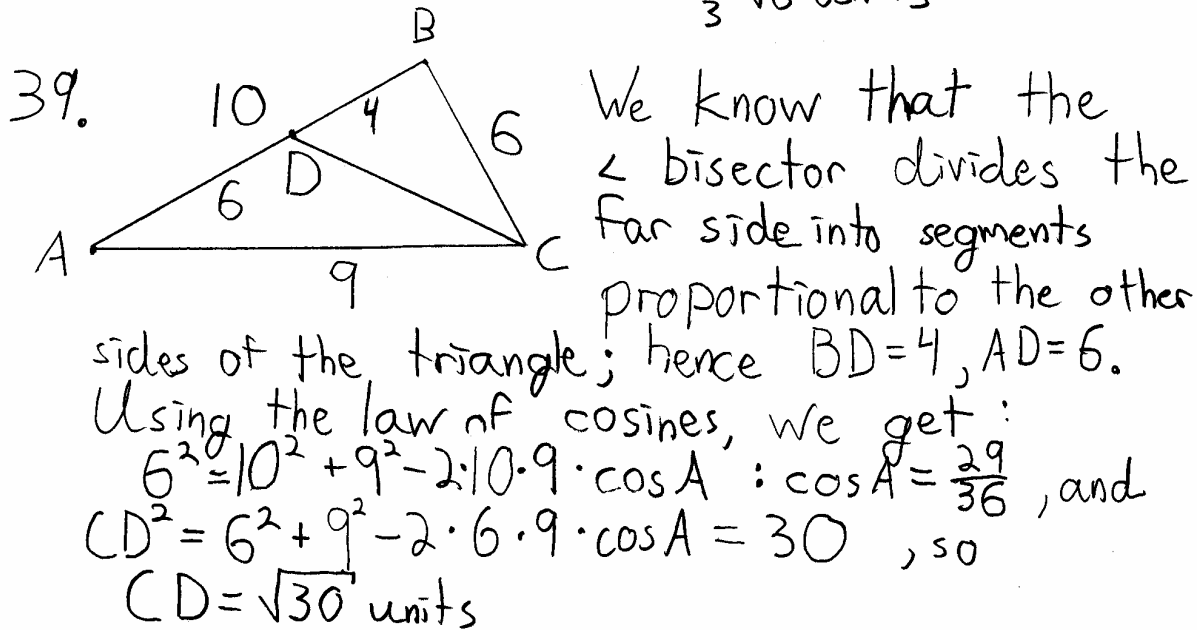 3
B
39.
10
4
6
D
6
A
C
9
We know that the
∠ bisector divides the
far side into segments
proportional to the other
sides of the triangle; hence BD=4, AD=6.
Using the law of cosines, we get:
6²=10²+9²-2·10·9·cos A : cos A = 29/36, and
CD²=6²+9²-2·6·9·cos A = 30, so
CD=√30 units